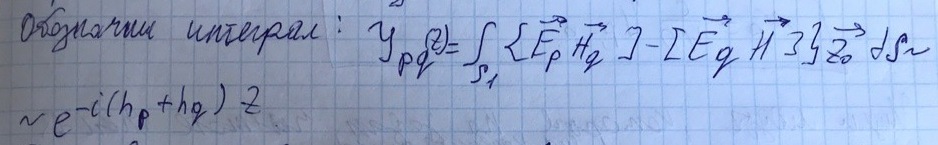 Обозначим интеграл: Y_{pq}(z) = ∫_{S_1} {[\vec{E_p} \vec{H_q}] - [\vec{E_q} \vec{H}]} \vec{z_0} dS ~
~ e^{-i(h_p + h_q) z}